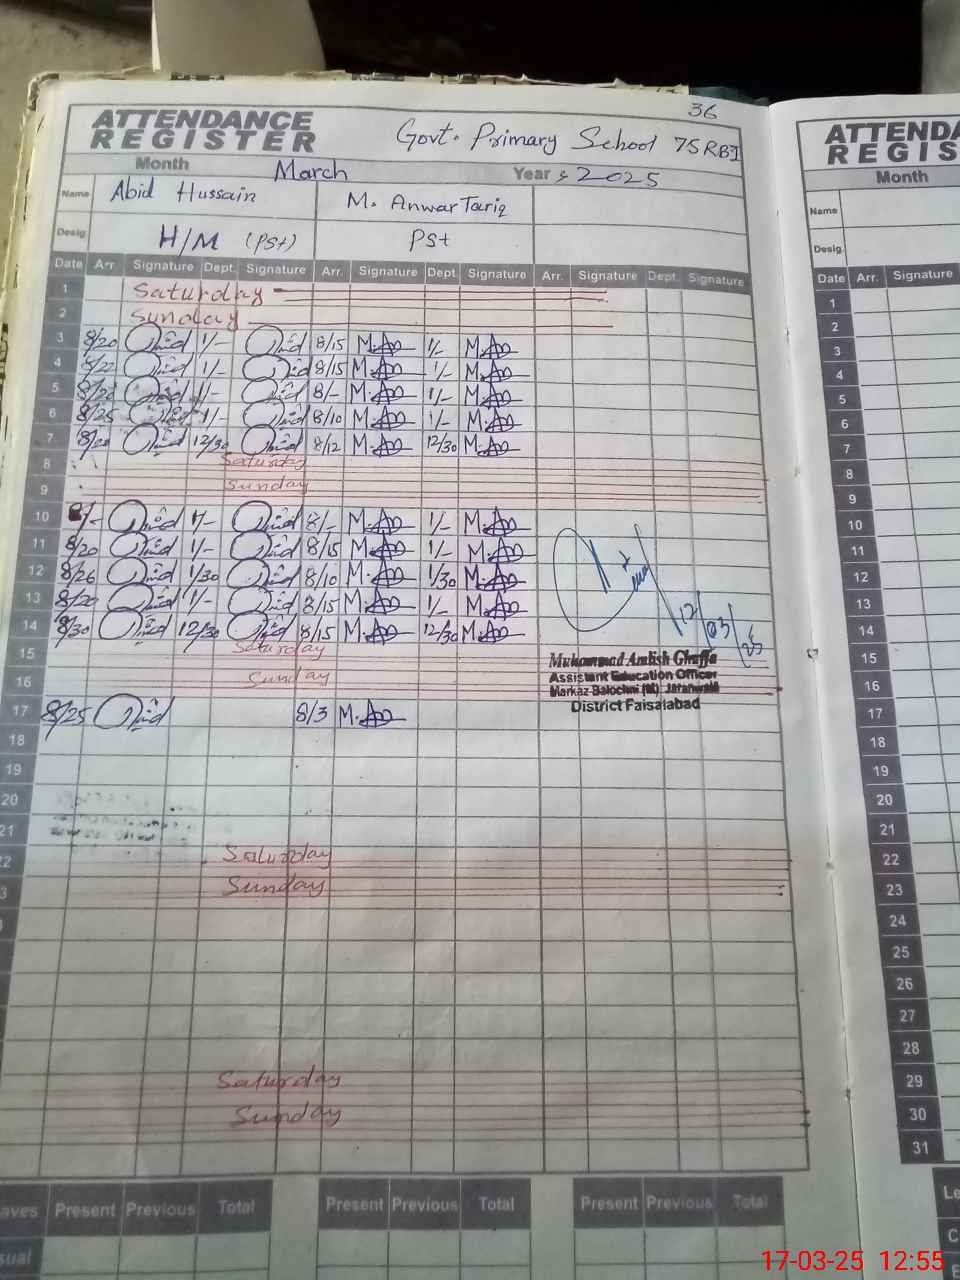 36
ATTENDANCE REGISTER Govt. Primary School 75RBI
Month March Year 2025
Name Abid Hussain M. Anwar Tariq
Desig. H/M (PST) PST
Date Arr. Signature Dept. Signature Arr. Signature Dept. Signature Arr. Signature Dept. Signature
1 Saturday
2 Sunday
3 8/20 1/- 8/15 1/-
4 8/22 1/- 8/15 1/-
5 1/- 8/- 1/-
6 8/25 1/- 8/10 1/-
7 8/20 12/30 8/12 12/30
8 Saturday
9 Sunday
10 8/- 1/- 8/- 1/-
11 8/20 1/- 8/15 1/-
12 8/26 1/30 8/10 1/30
13 8/20 1/- 8/15 1/-
14 8/30 12/30 8/15 12/30
12/03/25
15 Saturday
16 Sunday
Muhammad
Assistant Education Officer
Markaz Balochni (M) Jaranwala
District Faisalabad
17 8/25 8/3
18
19
20
21
22 Saturday
23 Sunday
Saturday
Sunday
Leaves Present Previous Total Present Previous Total Present Previous Total
Casual
ATTENDA
REGIS
Month
Name
Desig.
Date Arr. Signature
1
2
3
4
5
6
7
8
9
10
11
12
13
14
15
16
17
18
19
20
21
22
23
24
25
26
27
28
29
30
31
Le
C
17-03-25 12:55